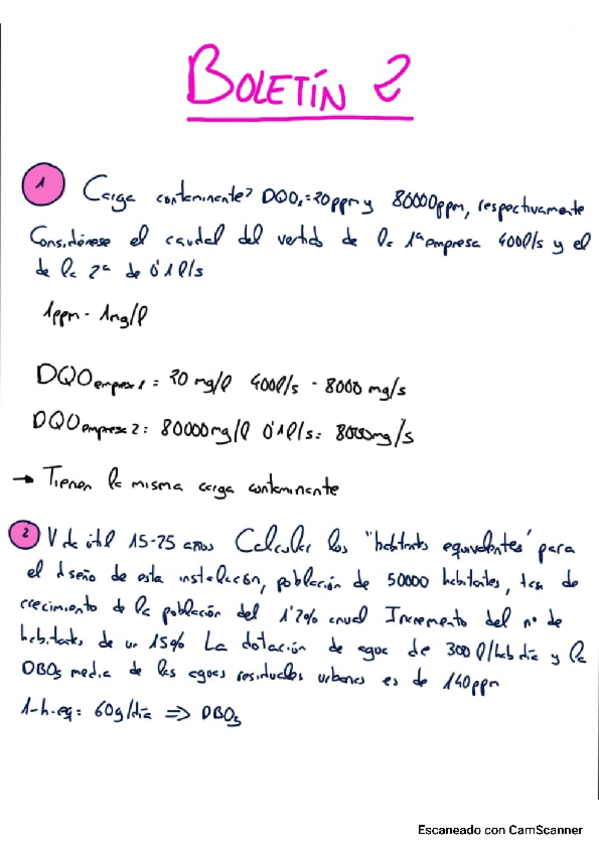 BOLETÍN 2
1 Carga contaminante? DQO₁=20ppm y 80000ppm, respectivamente
Considérese el caudal del vertido de la 1ª empresa 400l/s y el
de la 2ª de 0'1 l/s
1ppm - 1mg/l
DQO empresa 1 = 20 mg/l 400l/s = 8000 mg/s
DQO empresa 2 = 80000mg/l 0'1l/s = 8000mg/s
→ Tienen la misma carga contaminante
2 V de útil 15-25 años Calcular los "habitantes equivalentes" para
el diseño de esta instalación, población de 50000 habitantes, tasa de
crecimiento de la población del 1'2% anual Incremento del nº de
habitantes de un 15% La dotación de agua de 300 l/hab día y la
DBO₅ media de las aguas residuales urbanas es de 140ppm
1-h-eq = 60g/día => DBO₅
Escaneado con CamScanner